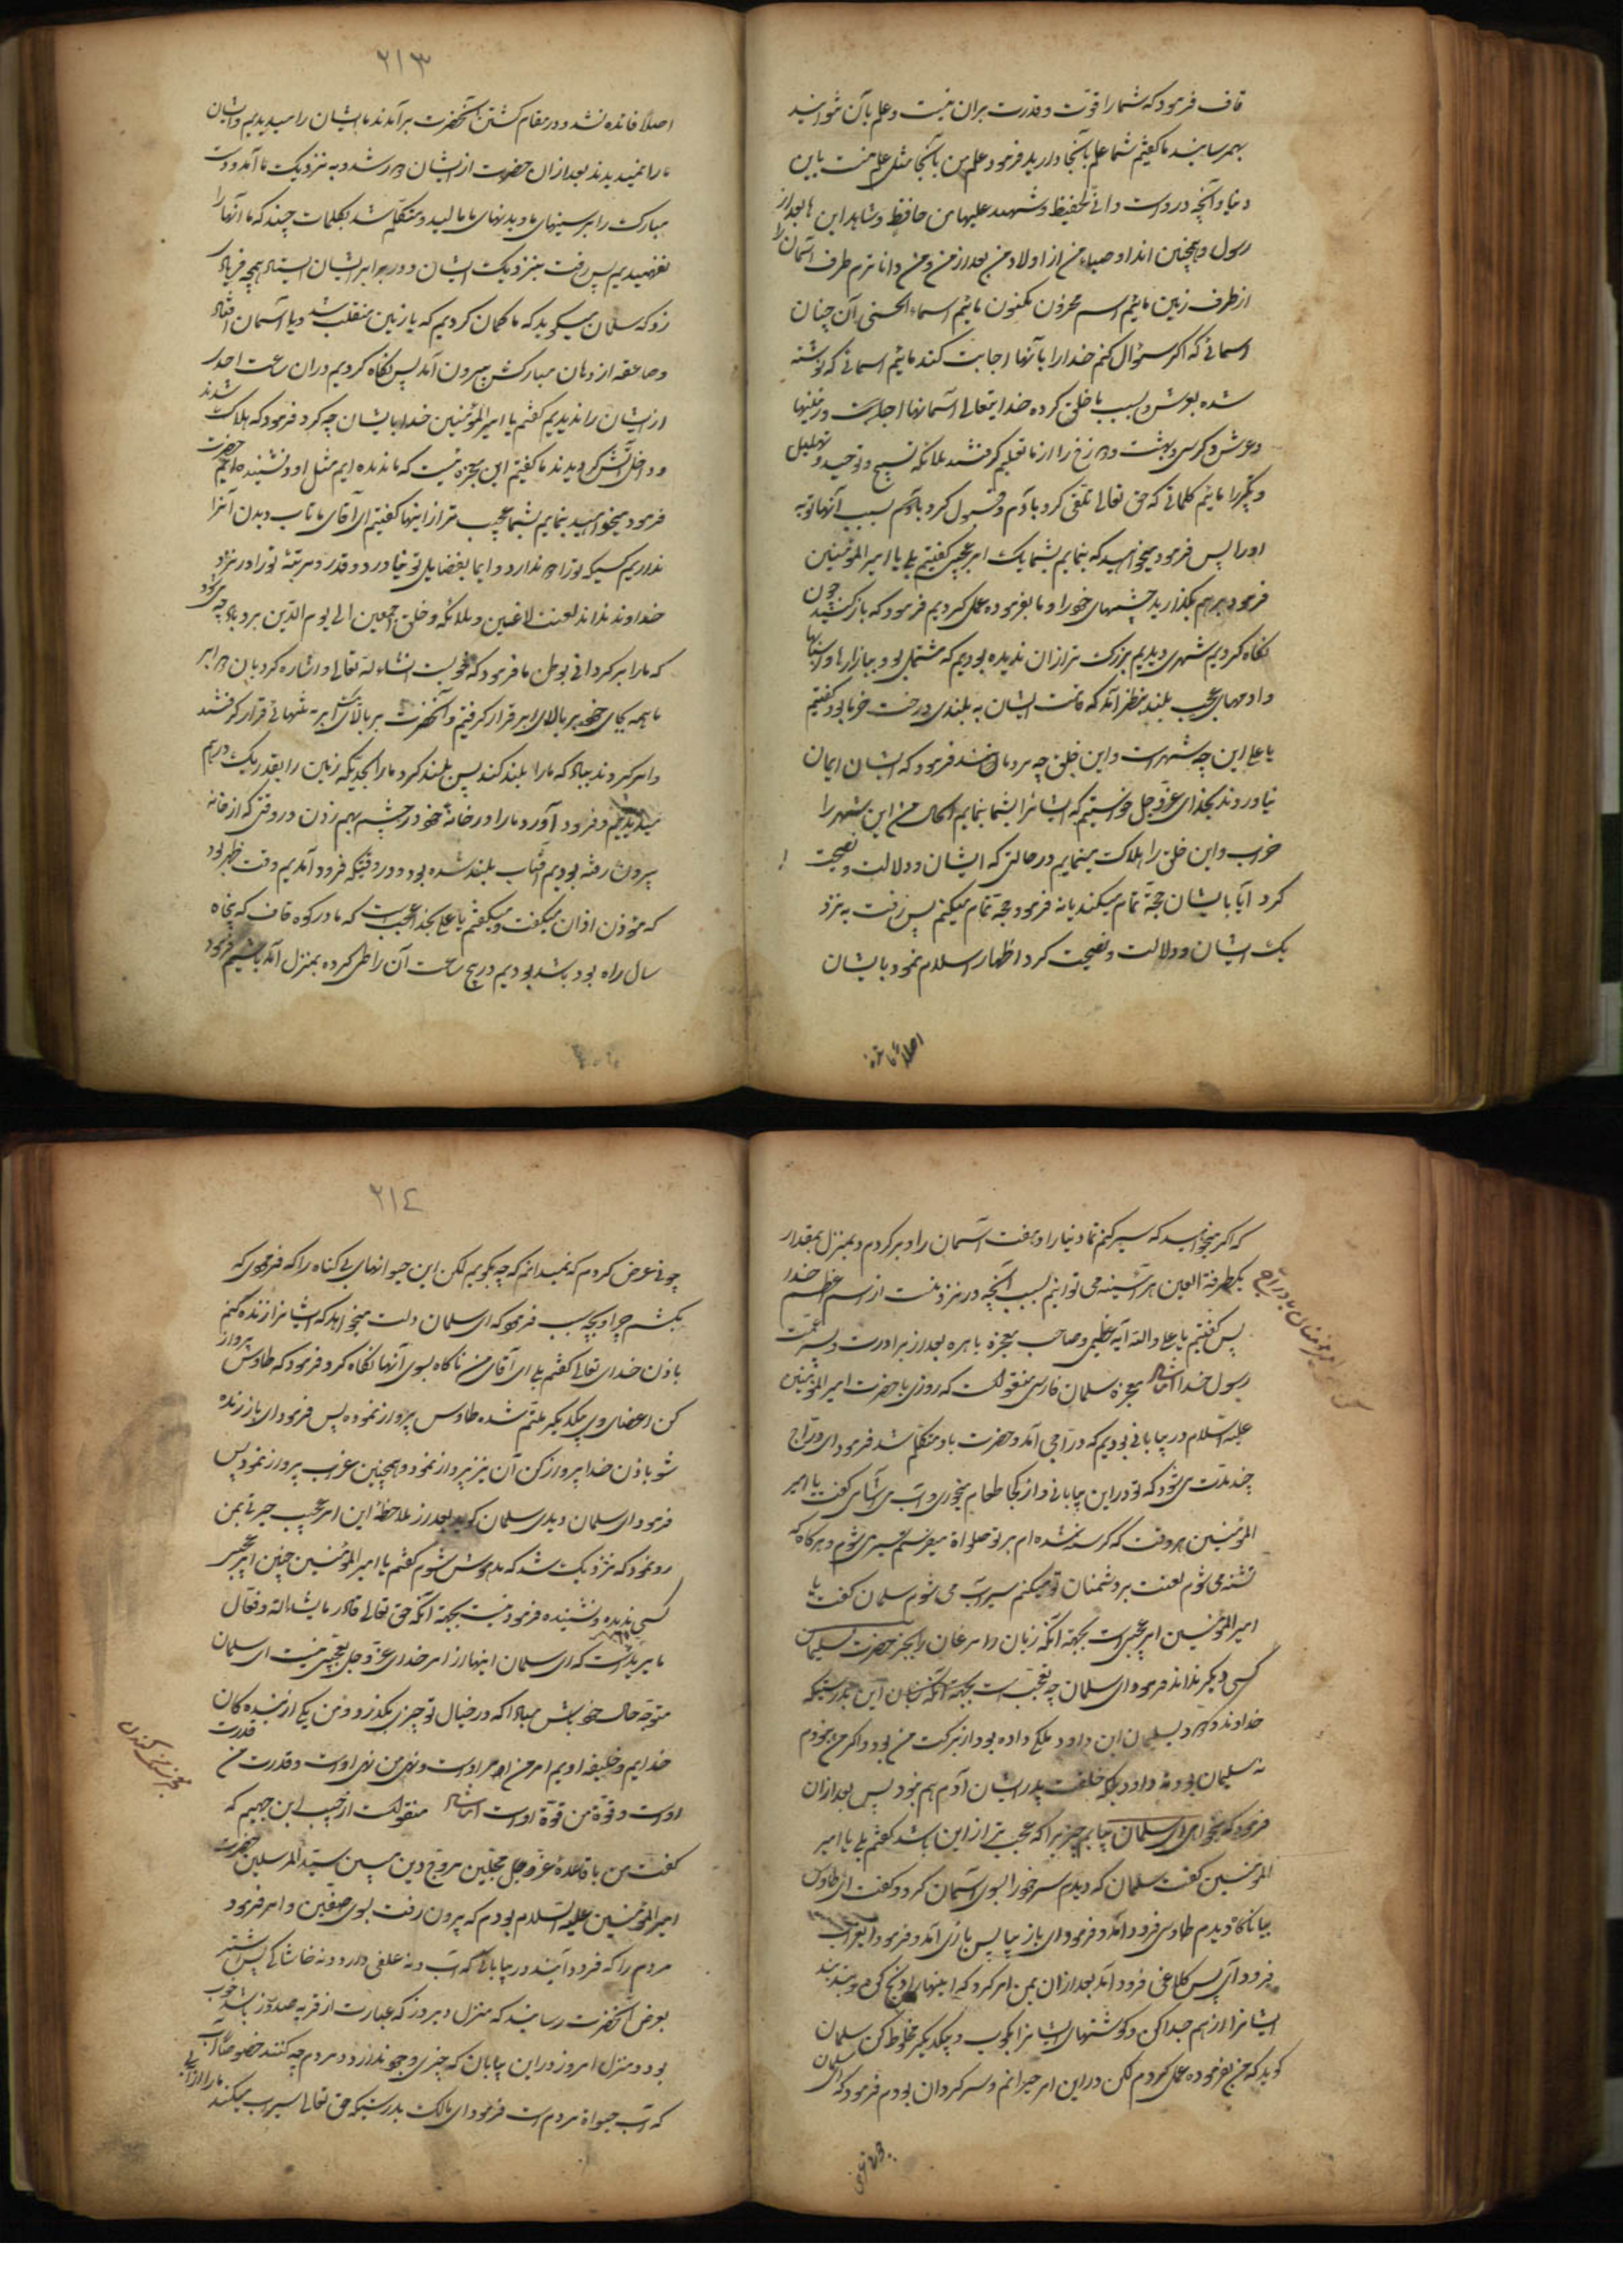 قاف فرمود که شما را قوت و قدرت بران نیست و علم بآن نتوانید
بهمرسانید ما گفتیم شما علم بآنجا دارید فرمود علم من بآنجا مثل علم منست باین
دنیا و آنچه در اوست و انی لحفیظ و شهید علیها من حافظ و شاهد این ها بعد از
رسول و همچنین اند اوصیاء من از اولاد من بعد از من و من داناترم طرف آسمان را
از طرف زمین مائیم اسم مخزون مکنون مائیم اسماء الحسنی آن چنان
اسمائی که اگر سئوال کنم خدا را بآنها اجابت کند مائیم اسمائی که نوشته
شده بعرش و بسبب ما خلق کرده خدایتعالی آسمانها و زمینها
و عرش و کرسی و بهشت و دوزخ را از ما تعلیم گرفتند ملائکه تسبیح و توحید و تهلیل
و تکبیر را مائیم کلماتی که حق تعالی تلقی کرد بآدم و قبول کرد بسبب آنها توبه
او را پس فرمود میخواهید که بنمایم بشما یک امر عجبی گفتیم بلی یا امیر المؤمنین
فرمود برهم بگذارید چشمهای خود را و ما بفرموده عمل کردیم فرمود که باز کنید چون
نگاه کردیم شهری دیدیم بزرگ تر از آن ندیده بودیم که مشتمل بود ببازارها و
و آدمهای عجب بلند بنظر آمد که قامت ایشان به بلندی درخت خرما بود گفتیم
یا علی این چه شهر است و این خلق چه مردمانند فرمود که ایشان ایمان
نیاورده‌اند بخدای عز و جل خواستم که ایشانرا بشما بنمایم الحال من این شهر را
خراب و این خلق را هلاک مینمایم در حالتی که ایشان و دلالت و نصیحت
کرد آیا بایشان حجة تمام میکند یا نه فرمود حجة تمام میکنم پس رفت به نزد
یک ایشان و دلالت و نصیحت کرد اظهار اسلام نمود بایشان
اصلا فائده
٢١٣
اصلا فائده نشد و در مقام کشتن آنحضرت برآمدند ما ایشان را میدیدیم و ایشان
ما را نمیدیدند بعد از آن حضرت از ایشان دور شد و به نزدیک ما آمد و دست
مبارک را بر سینهای ما و بدنهای ما مالید و متکلم شد بکلمات چند که ما آنها را
نفهمیدیم پس رفت بنزدیک ایشان و در برابر ایشان ایستاد
زد که سلمان میگوید که ما گمان کردیم که یا زمین منقلب شد و یا آسمان افتاد
و صاعقه از دهان مبارکش بیرون آمد پس نگاه کردیم در آن ساعت احدی
از ایشان را ندیدیم گفتم یا امیر المؤمنین خدا بایشان چه کرد فرمود که هلاک شدند
و داخل آتش گردیدند ما گفتیم این معجزه ایست که ما ندیده ایم مثل او و نشنیده ایم حضرت
فرمود میخواهید بنمایم بشما عجیب تر از اینها گفتیم ای آقای ما تاب دیدن آنرا
نداریم کسیکه تو را دوست ندارد و ایمان بفضایل تو نیاورد و قدر و مرتبه تو را در نزد
خداوند نداند لعنت لاعنین و ملائکه و خلق اجمعین الی یوم الدین بر او باد
که ما را برگردانی بوطن ما فرمود که خوبست انشاء الله تعالی و اشاره کرد بآن دو ابر
ما همه بجای خود بر بالای ابر قرار گرفتیم و آنحضرت بر بالای ابر تنهائی قرار گرفتند
و امر کردند بباد که ما را بلند کند پس بلند کرد ما را بحدیکه زمین را بقدر یک درهم
میدیدیم و فرود آورد ما را در خانه خود در چشم بهم زدن در وقتی که از خانه
بیرون رفته بودیم آفتاب بلند شده بود و در وقتیکه فرود آمدیم وقت ظهر بود
که مؤذن اذان میگفت و میگفتم یا علی بخدا عجیب است که ما در کوه قاف که پنجاه
سال راه بود باشد بودیم در پنج ساعت آن را طی کرده بمنزل آمده باشیم فرمود
که اگر میخواهید که سیر کنم تمام دنیا را و هفت آسمان را و برگردم بمنزل بمقدار
یکطرفة العین هر آئینه می توانم بسبب آنچه در نزد منست از اسم اعظم خدا
پس گفتیم یا علی والله آیه عظیمی و صاحب معجزه باهره بعد از برادرت و پسر عمت
رسول خدا ایضا معجزه سلمان فارسی منقولست که روزی با حضرت امیر المؤمنین
علیه السلام در بیابانی بودیم که دراجی آمد و حضرت باو متکلم شد فرمود ای دراج
چند مدت می شود که تو در این بیابانی و از کجا طعام میخوری و آب می آشامی گفت یا امیر
المؤمنین هر وقت که گرسنه شده ام بر تو صلواة میفرستم سیر می شوم و هرگاه که
تشنه می شوم لعنت بر دشمنان تو میکنم سیراب می شوم سلمان گفت یا
امیر المؤمنین امر عجبی است بجهة آنکه زبان مرغان را بجز حضرت سلیمان
کسی دیگر نداند فرمود ای سلمان چه تعجبست بجهة آنکه بدرستیکه
خداوند بسلیمان ابن داود ملکی داده بود از برکت من بود و اگر من نبودم
نه سلیمان بود و نه داود بلکه خلقت پدر ایشان آدم هم نبود پس بعد از آن
فرمود که میخواهی ای سلمان بنمایم چیزی را که عجب تر از این باشد گفتم بلی یا امیر
المؤمنین گفت سلمان که دیدم سر خود را بسوی آسمان کرد و گفت ای طاوس
بیا ناگاه دیدم طاوسی فرود آمد و فرمود ای باز بیا پس بازی آمد و فرمود ای غراب
فرود آی پس کلاغی فرود آمد بعد از آن بمن امر کرد که اینها را ذبح کن و بند بند
ایشانرا از هم جدا کن و گوشتهای ایشانرا بکوب و بیکدیگر مخلوط کن سلمان
گوید که من بفرموده عمل کردم لکن در این امر حیرانم و سرگردان بودم فرمود که ای سلمان
٢١٤
چونی عرض کردم که نمیدانم که چه بگویم لکن این حیوانهای بی گناه را که فرمودی که
بکشم چرا و بچه سبب فرمود که ای سلمان دلت میخواهد که ایشانرا زنده کنم
باذن خدای تعالی گفتم بلی ای آقای من ناگاه بسوی آنها نگاه کرد و فرمود که طاوس پرواز
کن اعضای وی بیکدیگر ملتئم شده طاوس پرواز نموده پس فرمود ای باز زنده
شو باذن خدا پرواز کن آن نیز پرواز نمود و همچنین غراب پرواز نمود پس
فرمود ای سلمان دیدی سلمان گوید بعد از ملاحظه این امر عجیب حیرتی بمن
رو نمود که نزدیک شد که مدهوش شوم گفتم یا امیر المؤمنین چنین امر عجیبی
کسی ندیده و نشنیده فرمود نیست بجهة آنکه حق تعالی قادر ما یشاء الله و فعال
ما یرید است که ای سلمان اینها از امر خدای عز و جل تعجبی نیست ای سلمان
متوجه حال خویش باش مبادا که در خیال تو چیزی بگذرد من یکی از بنده گان
خدایم و خلیفه اویم امر من امر اوست و نهی من نهی اوست و قدرت من قدرت
اوست و قوة من قوة اوست ایضا منقولست از حبیب ابن جهیم که
گفت من با قاعده غر محجلین مروج دین مبین سید المرسلین حضرت
امیر المؤمنین علیه السلام بودم که بیرون رفت بسوی صفین و امر فرمود
مردم را که فرود آیند در بیابانی که نه آب و نه علفی دارد و نه خاشاکی پس اشتر
بعرض آنحضرت رسانید که منزل دیروز که عبارت از قریه صندوزا باشد خوب
بود و منزل امروز در این بیابان که چیزی وجود ندارد و مردم چه کنند خصوصا آب
که آب حیواة مردم است فرمود ای مالک بدرستیکه حق تعالی سیراب میکند ما را از آبی